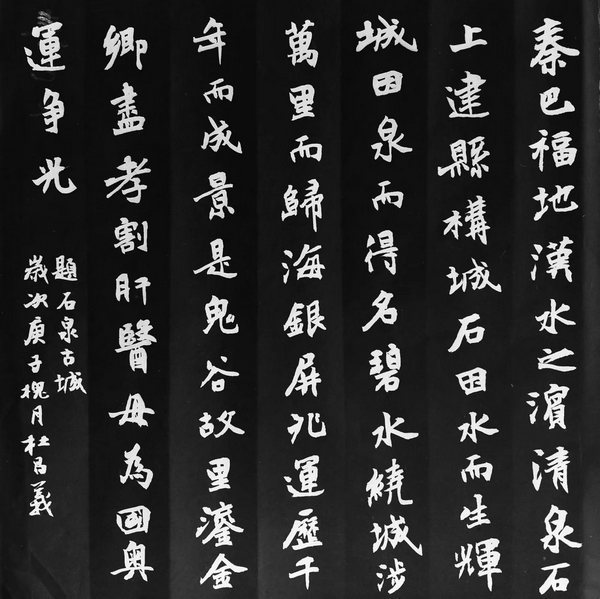 秦巴福地漢水之濱清泉石
上建縣構城石因水而生輝
城因泉而得名碧水繞城涉
萬里而歸海銀屏兆運歷千
年而成景是鬼谷故里鎏金
鄉盡孝割肝醫母為國奧
運争光
題石泉古城
歲次庚子槐月杜昌義